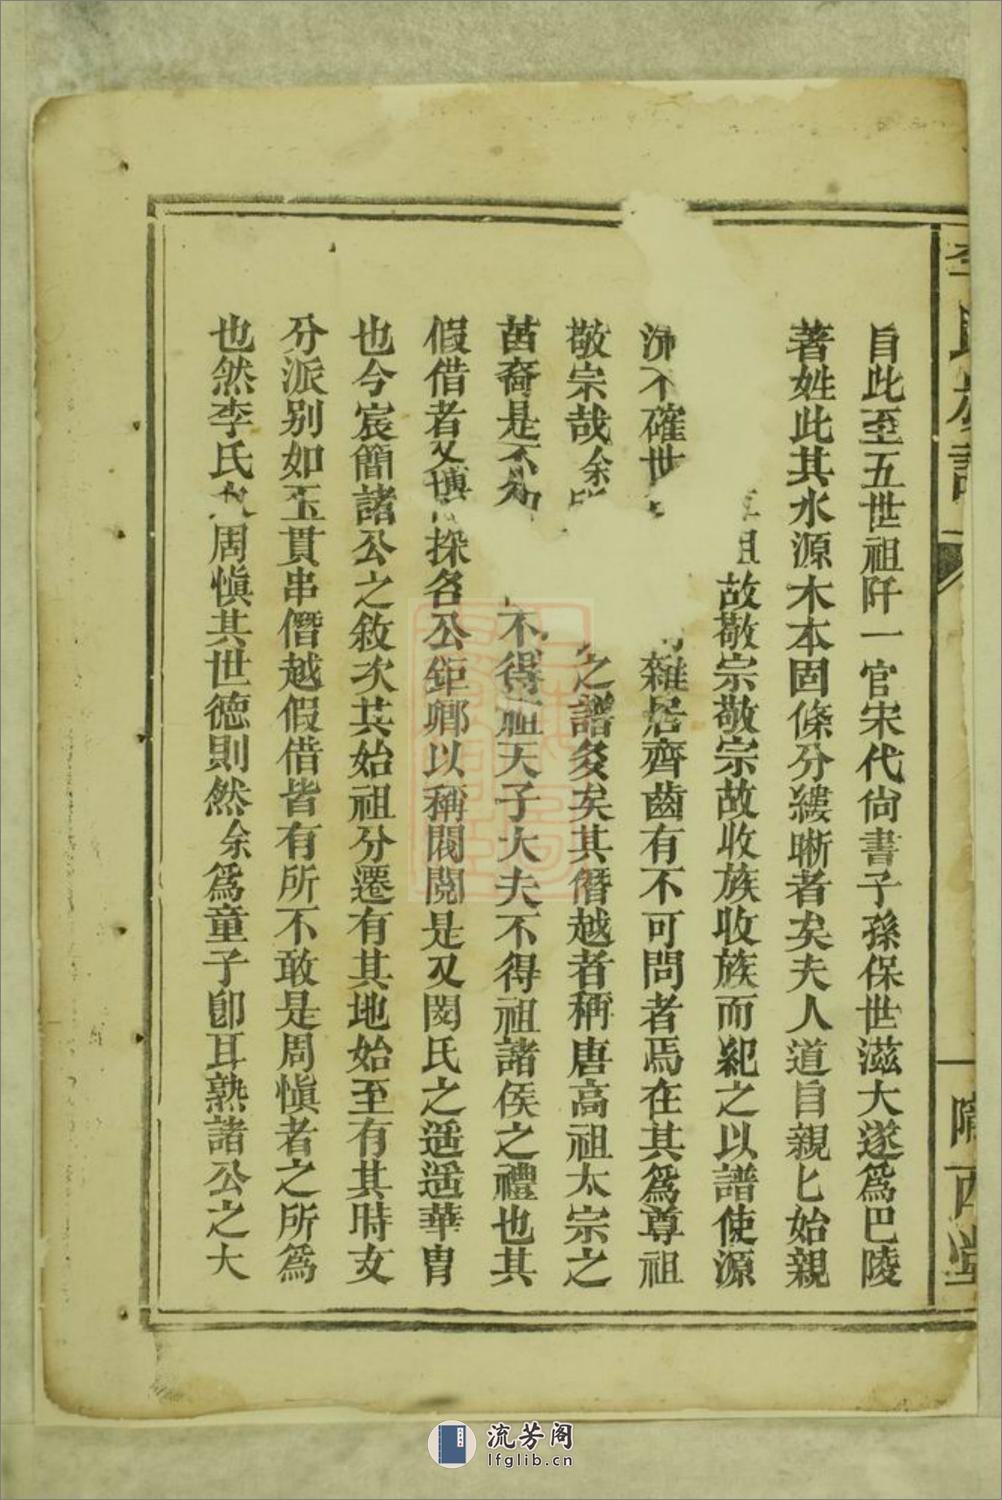 自此至五世祖阡一官宋代尙書子孫保世滋大遂爲巴陵
著姓此其水源木本固條分縷晰者矣夫人道自親匕始親
祖故敬宗敬宗故收族收族而紀之以譜使源
不確世雜居齊齒有不可問者焉在其爲尊祖
敬宗哉余之譜夥矣其僭越者稱唐高祖太宗之
苖裔是不知不得祖天子大夫不得祖諸侯之禮也其
假借者又塡探名公鉅卿以稱閥閱是又閔氏之遥遥華胄
也今宸簡諸公之敘次其始祖分遷有其地始至有其時支
分派别如玉貫串僭越假借皆有所不敢是周愼者之所爲
也然李氏周愼其世德則然余爲童子卽耳熟諸公之大
李氏族譜
一
隴西堂
流芳阁
lfglib.cn